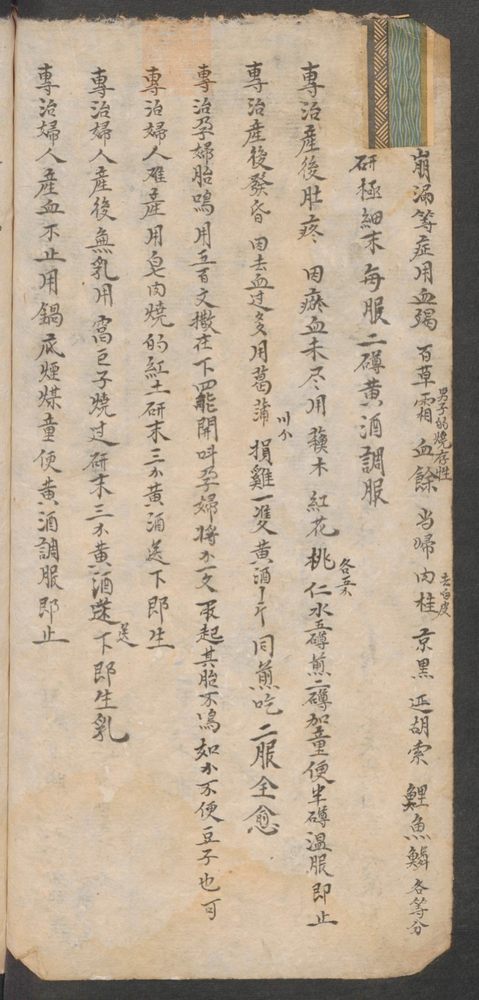 崩漏等症用血竭 百草霜 血餘 男子的燒存性 当帰 肉桂 去白皮 京黑 延胡索 鯉魚鱗 各等分
研極細末每服二磚黄酒調服
專治產後肚疼 因瘀血未尽用蘇木 紅花 桃仁 各五水五磚煎二磚加童便半磚溫服即止
專治產後發昏 因去血过多用葛蒲 川 損雞一隻黄酒一斤同煎吃二服全愈
專治孕婦胎鳴用五百文撒在下四能開叫孕婦將小文取起其胎不鳴如小不便豆子也可
專治婦人难產用皂肉燒的紅土研末三分黄酒送下即生
專治婦人產後無乳用窩巨子燒过研末三分黄酒送下即生乳
專治婦人產血不止用鍋底煙煤童便黄酒調服即止